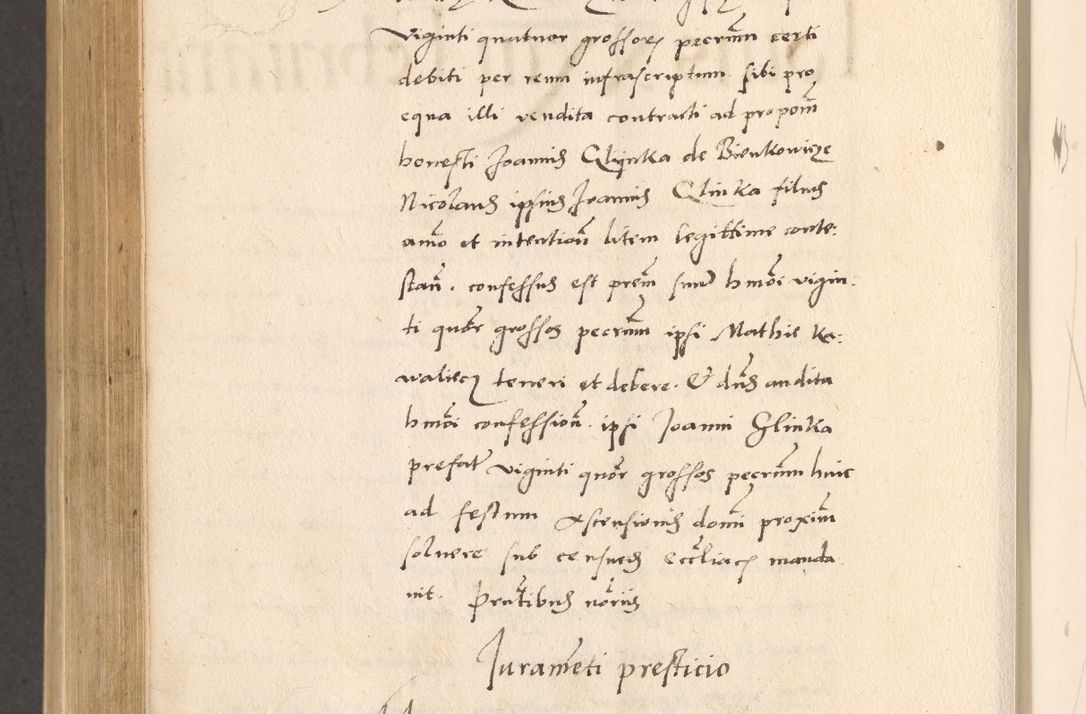 viginti quatuor grossorꝫ pecuniarum certi
debiti per reum infrascriptum sibi pro
equa illi vendita contracti ad propoñ
honesti Joannis Glijnka de Bienkowicze
Nicolaus ipsius Joannis Glinka filius
animo et intentioñ litem legittime conte:
stañ. confessus est premissam summam hmoi vigin:
ti quatuor grossos pecuniarum ipsi Mathie Ka:
waliecz teneri et debere. Et dñs audita
hmoi confessioñ. ipsi Joanni Glinka
prefat viginti quatuor grossos pecuniarum huic
ad festum Ascensionis domini proximum
solvere sub censuris Eccliaꝫ manda
vit. Prñtibus
Juramẽti presticio